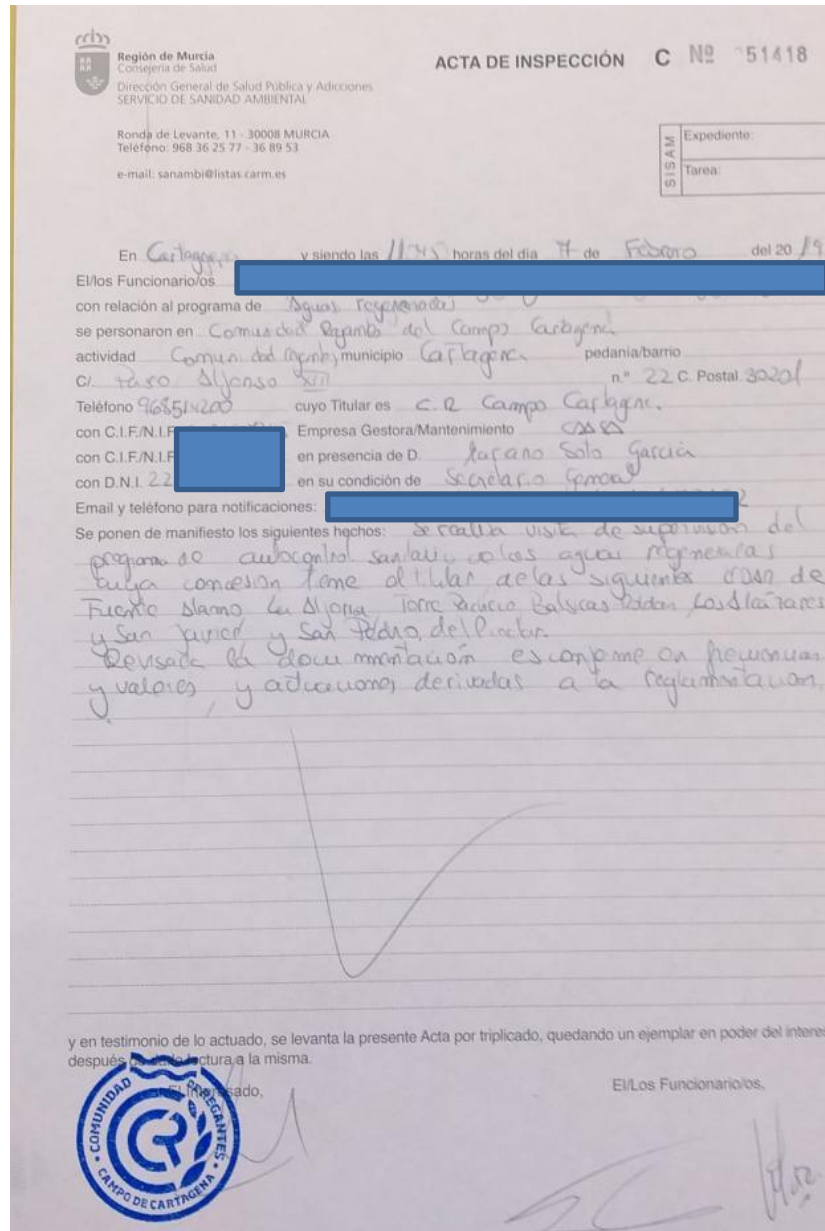 Región de Murcia
Consejería de Salud
Dirección General de Salud Pública y Adicciones
SERVICIO DE SANIDAD AMBIENTAL
ACTA DE INSPECCIÓN C Nº 51418
Ronda de Levante, 11 - 30008 MURCIA
Teléfono: 968 36 25 77 - 36 89 53
e-mail: sanambi@listas.carm.es
SISAM
Expediente:
Tarea:
En Cartagena y siendo las 11:45 horas del día 7 de Febrero del 2019
El/los Funcionario/os
con relación al programa de Aguas regeneradas
se personaron en Comunidad Regantes del Campo Cartagena
actividad Comunidad regantes, municipio Cartagena pedanía/barrio
C/. Paseo Alfonso XIII n.º 22 C. Postal 30201
Teléfono 968514200 cuyo Titular es C.R Campo Cartagena.
con C.I.F./N.I.F. Empresa Gestora/Mantenimiento
con C.I.F./N.I.F. en presencia de D. Soto García
con D.N.I. 22 en su condición de Secretario General
Email y teléfono para notificaciones:
Se ponen de manifiesto los siguientes hechos: Se realiza visita de supervisión del
programa de autocontrol sanitario de las aguas regeneradas
cuya concesión tiene el titular de las siguientes de
Fuente Alamo La Aljorra Torre Pacheco Balsicas Roldan Los Alcázares
y San Javier y San Pedro del Pinatar.
Revisada la documentación es conforme en frecuencias
y valores, y actuaciones derivadas a la reglamentación.
y en testimonio de lo actuado, se levanta la presente Acta por triplicado, quedando un ejemplar en poder del
después lectura a la misma.
El Interesado,
El/Los Funcionario/os,
COMUNIDAD DE REGANTES
CAMPO DE CARTAGENA